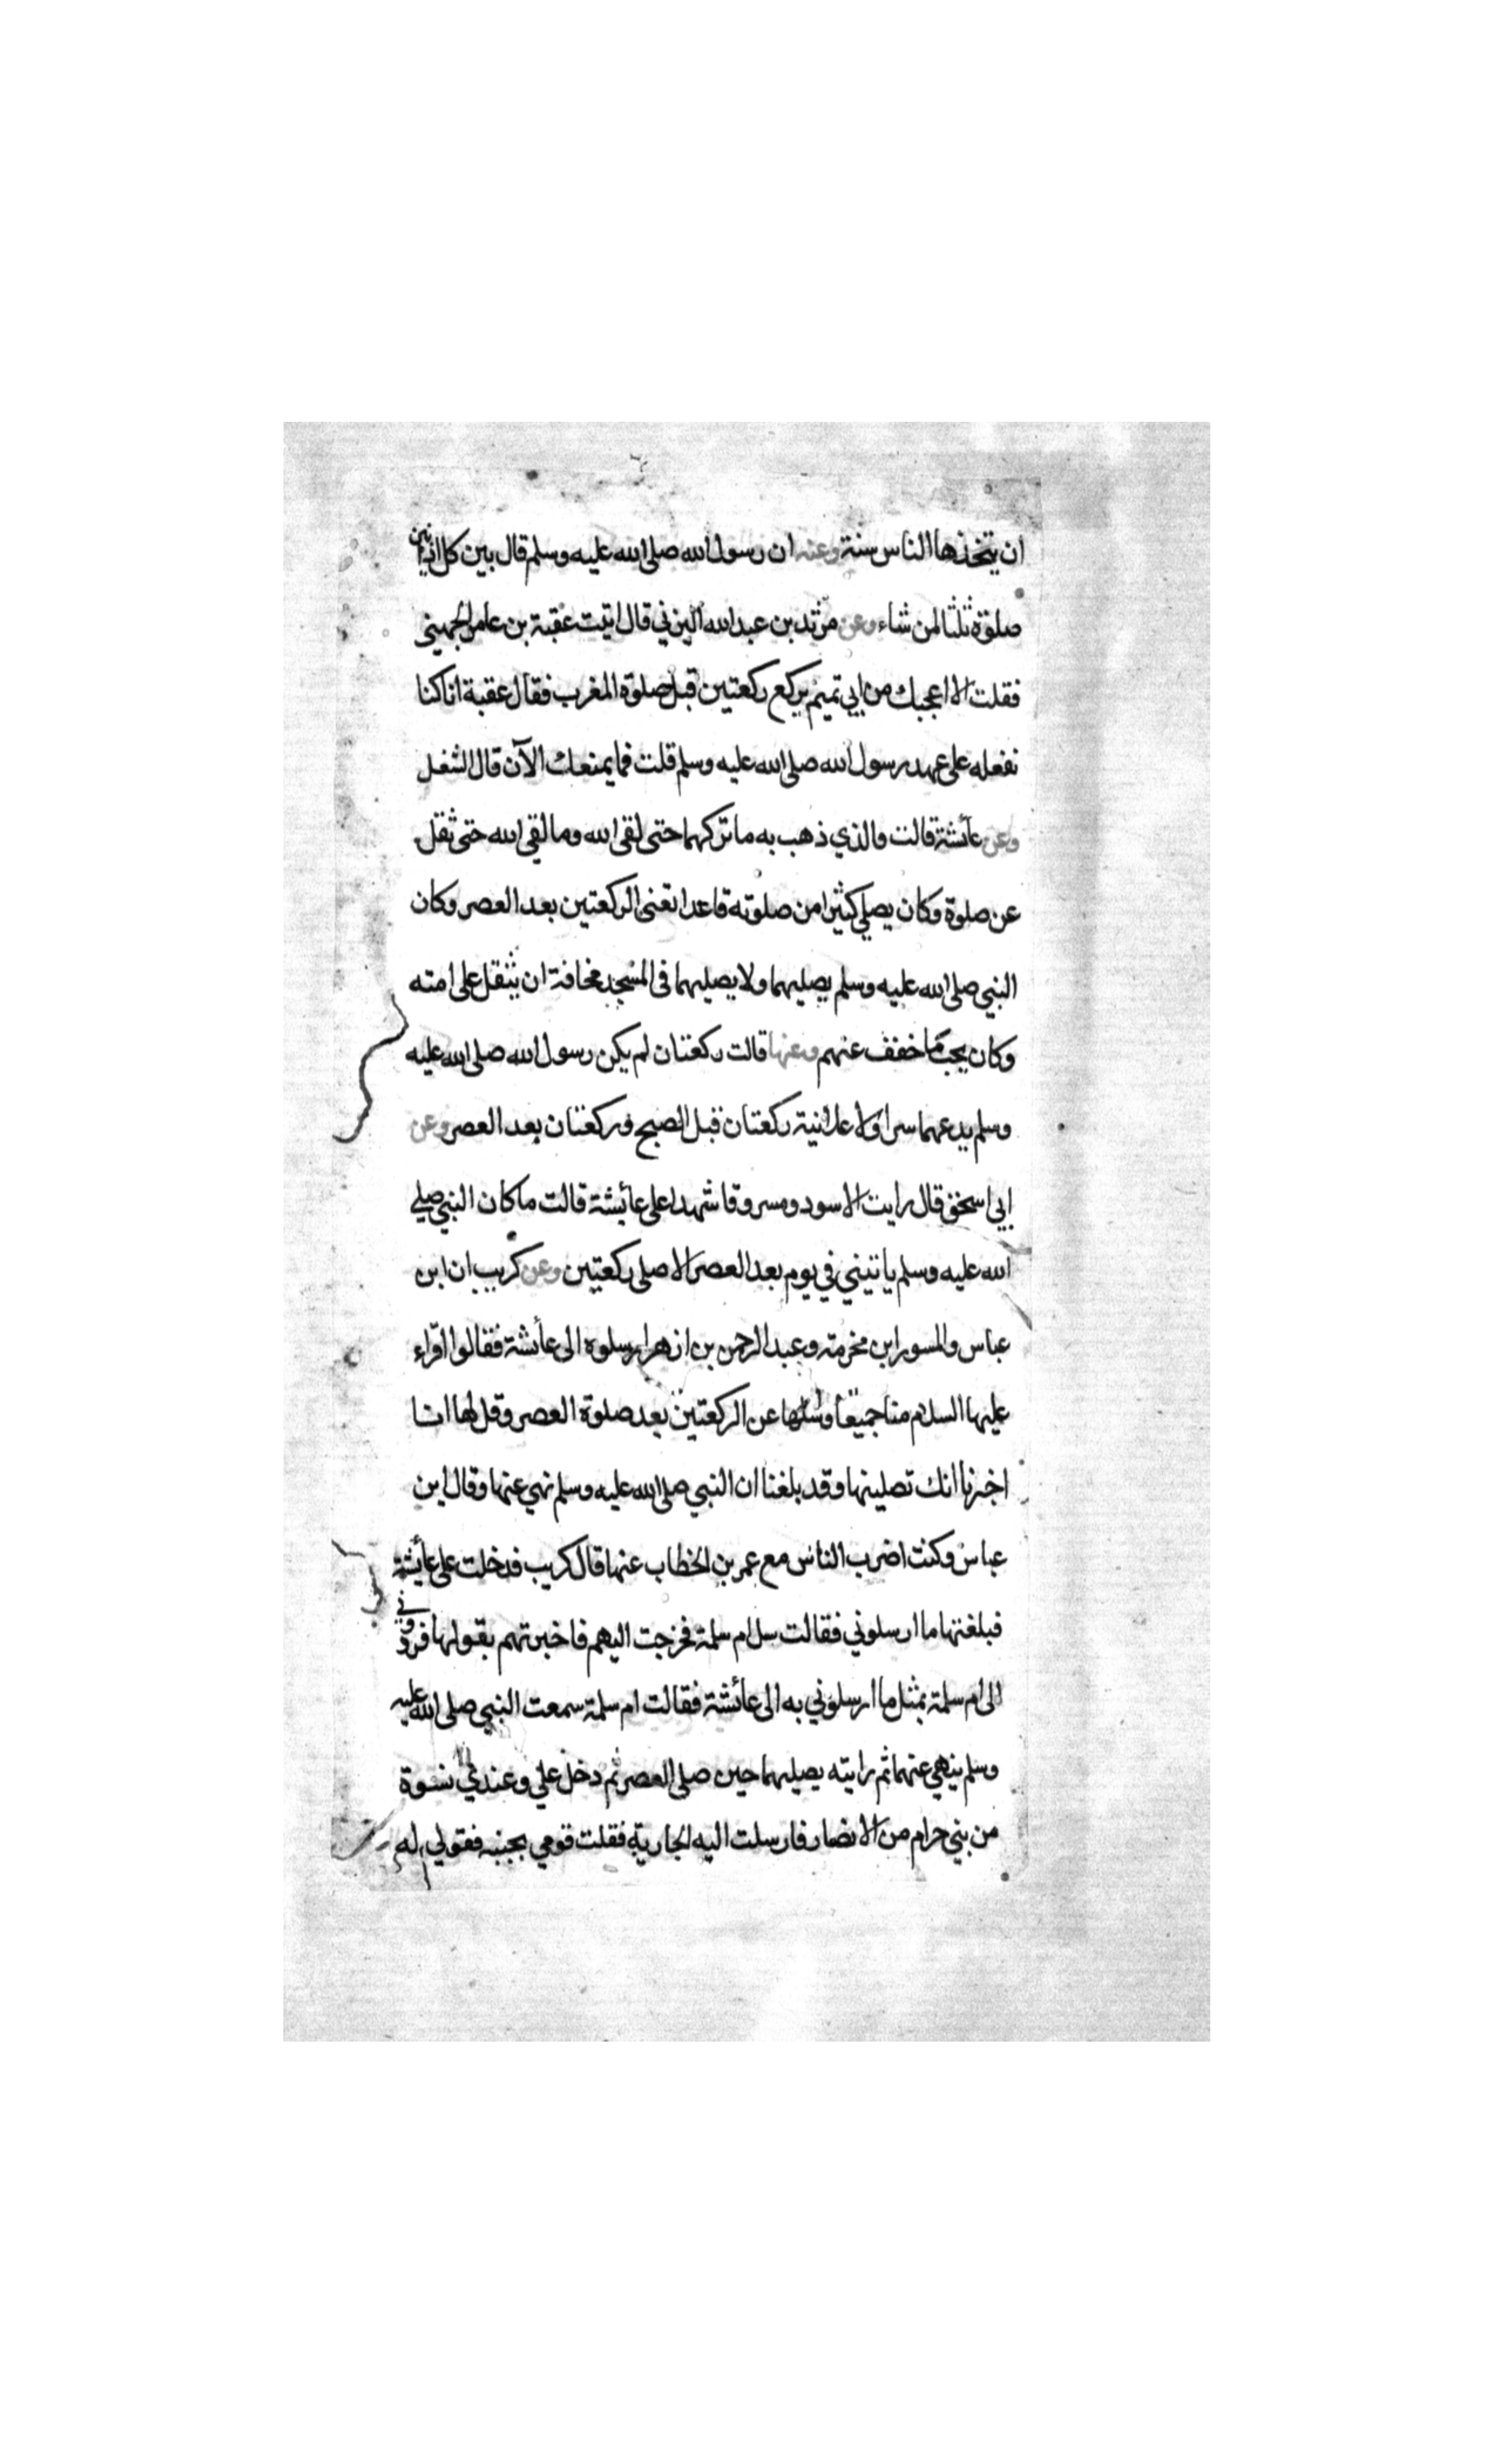 ان يتخذها الناس سنة وعنه ان رسول الله صلى الله عليه وسلم قال بين كل اذانين
صلوة ثلثا لمن شاء وعن مرثد بن عبد الله اليزني قال اتيت عقبة بن عامر الجهيني
فقلت الا اعجبك من ابي تميم يركع ركعتين قبل صلوة المغرب فقال عقبة انا كنا
نفعله على عهد رسول الله صلى الله عليه وسلم قلت فما يمنعك الآن قال الشغل
وعن عائشة قالت والذي ذهب به ما تركهما حتى لقى الله وما لقى الله حتى ثقل
عن صلوة وكان يصلي كثيرا من صلوته قاعدا تعنى الركعتين بعد العصر وكان
النبي صلى الله عليه وسلم يصليهما ولا يصليهما في المسجد مخافة ان يثقل على امته
وكان يحب ما خفف عنهم وعنها قالت ركعتان لم يكن رسول الله صلى الله عليه
وسلم يدعهما سرا ولا علانية ركعتان قبل الصبح وركعتان بعد العصر وعن
ابي اسحق قال رايت الاسود ومسروقا شهدا على عائشة قالت ما كان النبي صلى
الله عليه وسلم ياتيني في يوم بعد العصر الا صلى ركعتين وعن كريب ان ابن
عباس والمسور ابن مخرمة وعبد الرحمن بن ازهر ارسلوه الى عائشة فقالوا اقراء
عليها السلام منا جميعا وسلها عن الركعتين بعد صلوة العصر وقل لها انا
اخبرنا انك تصلينها وقد بلغنا ان النبي صلى الله عليه وسلم نهى عنها وقال ابن
عباس وكنت اضرب الناس مع عمر بن الخطاب عنها قال كريب فدخلت على عائشة
فبلغتها ما ارسلوني فقالت سل ام سلمة فخرجت اليهم فاخبرتهم بقولها فردوني
الى ام سلمة بمثل ما ارسلوني به الى عائشة فقالت ام سلمة سمعت النبي صلى الله عليه
وسلم ينهى عنهما ثم رايته يصليهما حين صلى العصر ثم دخل علي وعندي نسوة
من بني حرام من الانصار فارسلت اليه الجارية فقلت قومي بجنبه فقولي له